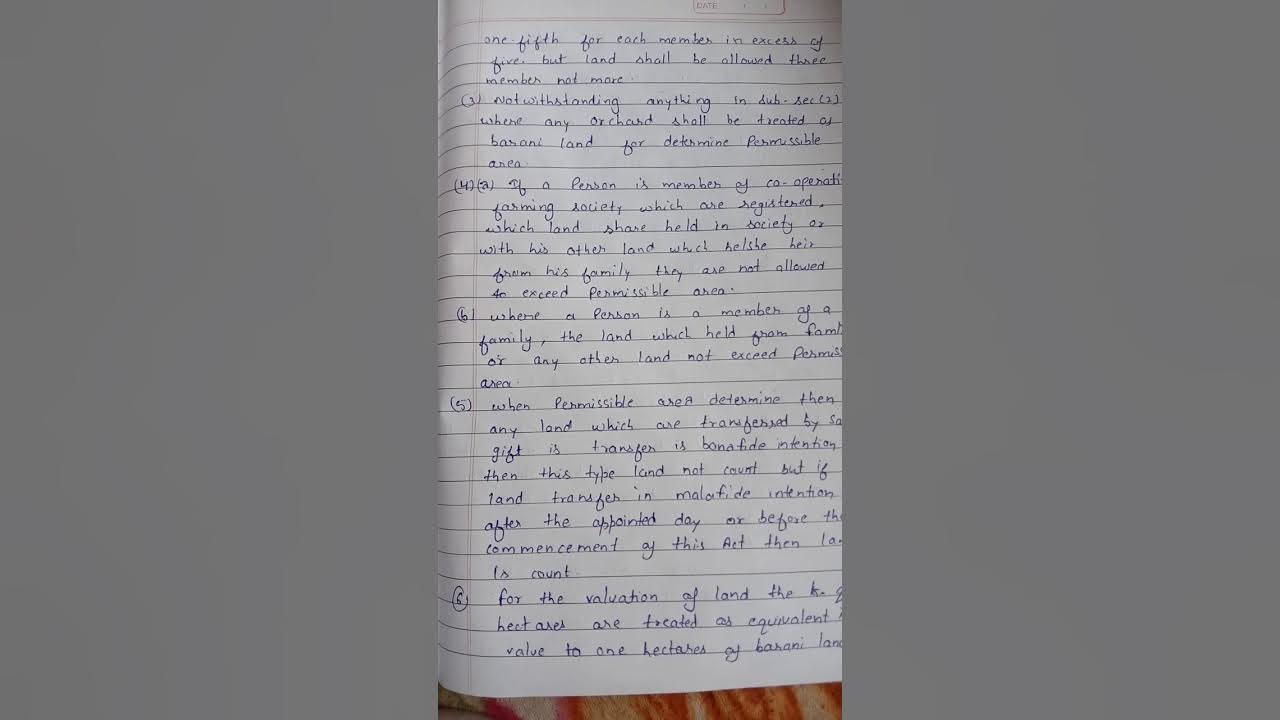 DATE
one-fifth for each member in excess of
five. but land shall be allowed three
member not more.
(3) Notwithstanding anything in sub-sec(2)
where any orchard shall be treated as
barani land for determine Permissible
area.
(4)(a) If a Person is member of co-operati
farming society which are registered,
which land share held in society or
with his other land which he/she heir
from his family they are not allowed
to exceed Permissible area.
(b) where a Person is a member of a
family, the land which held from famil
or any other land not exceed Permiss
area.
(5) when Permissible area determine then
any land which are transferred by sa
gift is transfer is bonafide intention
then this type land not count but if
land transfer in malafide intention
after the appointed day or before the
commencement of this Act then la
is count.
(6) for the valuation of land the
hectares are treated as equivalent i
value to one hectares of barani land